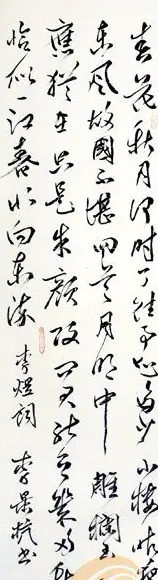 春花秋月何时了往事知多少小楼昨
东风故國不堪回首月明中雕欄玉
應猶在只是朱顏改问君能有幾多
恰似一江春水向东流 李煜词 李景杭书